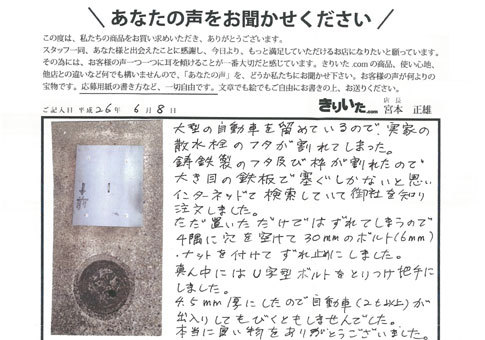 あなたの声をお聞かせください
この度は、私たちの商品をお買い求めいただき、ありがとうございます。
スタッフ一同、あなた様と出会えたことに感謝し、今日より、もっと満足していただけるお店になりたいと願っています。
その為には、お客様の声一つ一つに耳を傾けることが一番大切だと感じています。きりいた.comの商品、使い心地、
他店との違いなど何でも構いませんので、「あなたの声」を、どうか私たちにお聞かせ下さい。お客様の声が何よりの
宝物です。応募用紙の書き方など、一切自由です。文章でも絵でもご自由にお書きの上、お送りください。
ご記入日 平成 26年 6月 8日
きりいた.com 店長 宮本 正雄
大型の自動車を留めているので、実家の
散水栓のフタが割れてしまった。
鋳鉄製のフタ及び枠が割れたので
大き目の鉄板で塞ぐしかないと思い
インターネットで検索していて御社を知り
注文しました。
ただ置いただけではずれてしまうので
4隅に穴を空けて30mmのボルト(6mm)
・ナットを付けてずれ止めにしました。
真ん中にはU字型ボルトをとりつけ把手に
しました。
4.5mm厚にしたので自動車(2t以上)が
出入りしてもびくともしませんでした。
本当に良い物をありがとうございました。